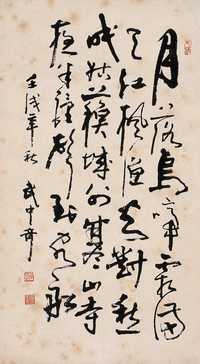 月落烏啼霜滿
天江楓漁火對愁
眠姑蘇城外寒山寺
夜半鐘聲到客船
壬戌年秋 武中奇